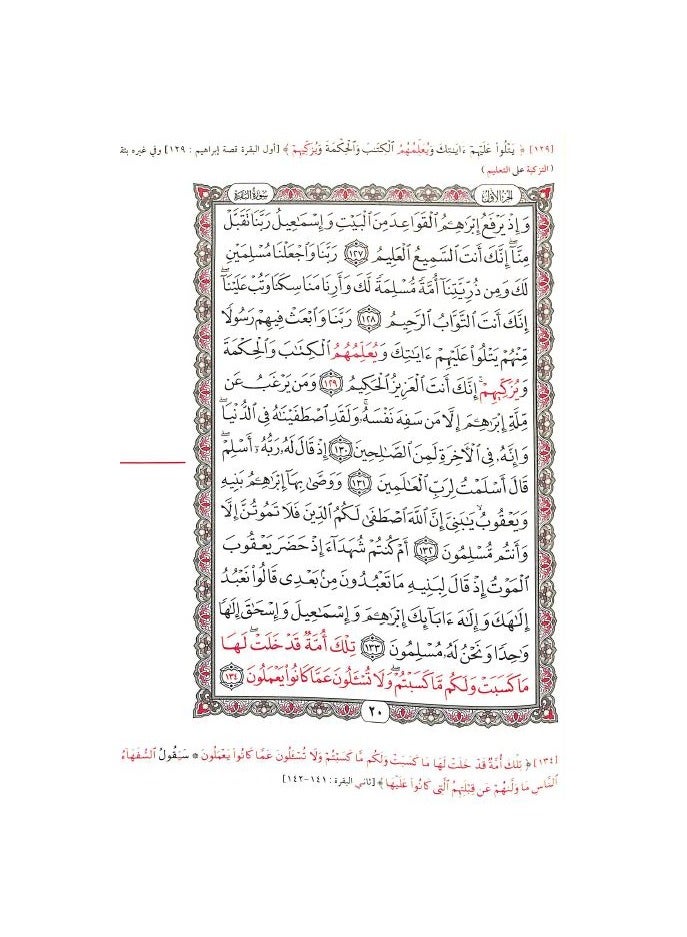 [١٢٩] ﴿ يَتْلُواْ عَلَيْهِمْ ءَايَٰتِكَ وَيُعَلِّمُهُمُ ٱلْكِتَٰبَ وَٱلْحِكْمَةَ وَيُزَكِّيهِمْ ﴾ [أول البقرة قصة إبراهيم : ١٢٩] وفي غيره بتقـ
( التزكية على التعليم )
الجزء الأول
سورة البقرة
وَإِذْ يَرْفَعُ إِبْرَٰهِـۧمُ ٱلْقَوَاعِدَ مِنَ ٱلْبَيْتِ وَإِسْمَٰعِيلُ رَبَّنَا تَقَبَّلْ
مِنَّآ ۖ إِنَّكَ أَنتَ ٱلسَّمِيعُ ٱلْعَلِيمُ ١٢٧ رَبَّنَا وَٱجْعَلْنَا مُسْلِمَيْنِ
لَكَ وَمِن ذُرِّيَّتِنَآ أُمَّةً مُّسْلِمَةً لَّكَ وَأَرِنَا مَنَاسِكَنَا وَتُبْ عَلَيْنَآ ۖ
إِنَّكَ أَنتَ ٱلتَّوَّابُ ٱلرَّحِيمُ ١٢٨ رَبَّنَا وَٱبْعَثْ فِيهِمْ رَسُولًا
مِّنْهُمْ يَتْلُواْ عَلَيْهِمْ ءَايَٰتِكَ وَيُعَلِّمُهُمُ ٱلْكِتَٰبَ وَٱلْحِكْمَةَ
وَيُزَكِّيهِمْ ۚ إِنَّكَ أَنتَ ٱلْعَزِيزُ ٱلْحَكِيمُ ١٢٩ وَمَن يَرْغَبُ عَن
مِّلَّةِ إِبْرَٰهِـۧمَ إِلَّا مَن سَفِهَ نَفْسَهُۥ ۚ وَلَقَدِ ٱصْطَفَيْنَٰهُ فِى ٱلدُّنْيَا ۖ
وَإِنَّهُۥ فِى ٱلْءَاخِرَةِ لَمِنَ ٱلصَّٰلِحِينَ ١٣٠ إِذْ قَالَ لَهُۥ رَبُّهُۥٓ أَسْلِمْ ۖ
قَالَ أَسْلَمْتُ لِرَبِّ ٱلْعَٰلَمِينَ ١٣١ وَوَصَّىٰ بِهَآ إِبْرَٰهِـۧمُ بَنِيهِ
وَيَعْقُوبُ يَٰبَنِىَّ إِنَّ ٱللَّهَ ٱصْطَفَىٰ لَكُمُ ٱلدِّينَ فَلَا تَمُوتُنَّ إِلَّا
وَأَنتُم مُّسْلِمُونَ ١٣٢ أَمْ كُنتُمْ شُهَدَآءَ إِذْ حَضَرَ يَعْقُوبَ
ٱلْمَوْتُ إِذْ قَالَ لِبَنِيهِ مَا تَعْبُدُونَ مِنۢ بَعْدِى قَالُواْ نَعْبُدُ
إِلَٰهَكَ وَإِلَٰهَ ءَابَآئِكَ إِبْرَٰهِـۧمَ وَإِسْمَٰعِيلَ وَإِسْحَٰقَ إِلَٰهًا
وَٰحِدًا وَنَحْنُ لَهُۥ مُسْلِمُونَ ١٣٣ تِلْكَ أُمَّةٌ قَدْ خَلَتْ ۖ لَهَا
مَا كَسَبَتْ وَلَكُم مَّا كَسَبْتُمْ ۖ وَلَا تُسْـَٔلُونَ عَمَّا كَانُواْ يَعْمَلُونَ ١٣٤
٢٠
[١٣٤] ﴿ تِلْكَ أُمَّةٌ قَدْ خَلَتْ لَهَا مَا كَسَبَتْ وَلَكُم مَّا كَسَبْتُمْ وَلَا تُسْـَٔلُونَ عَمَّا كَانُواْ يَعْمَلُونَ * سَيَقُولُ ٱلسُّفَهَآءُ
ٱلنَّاسِ مَا وَلَّىٰهُمْ عَن قِبْلَتِهِمُ ٱلَّتِى كَانُواْ عَلَيْهَا ﴾ [ثاني البقرة : ١٤١-١٤٢]